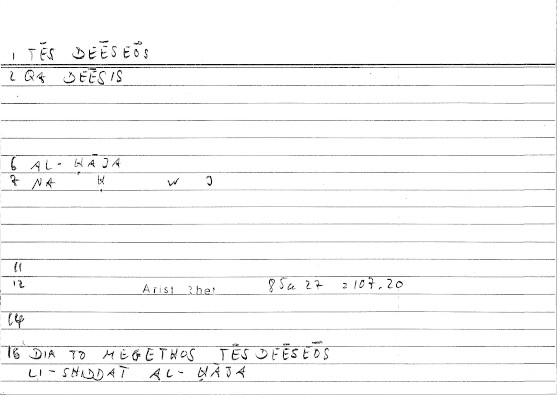 1 TĒS DEĒSEŌS
2 QA DEĒSIS
6 AL-ḤĀJA
7 NA Ḥ W J
11
12 Arist Rhet 85a 27 = 107.20
14
16 DIA TO MEGETHOS TĒS DEĒSEŌS
LI-SHIDDAT AL-ḤĀJA